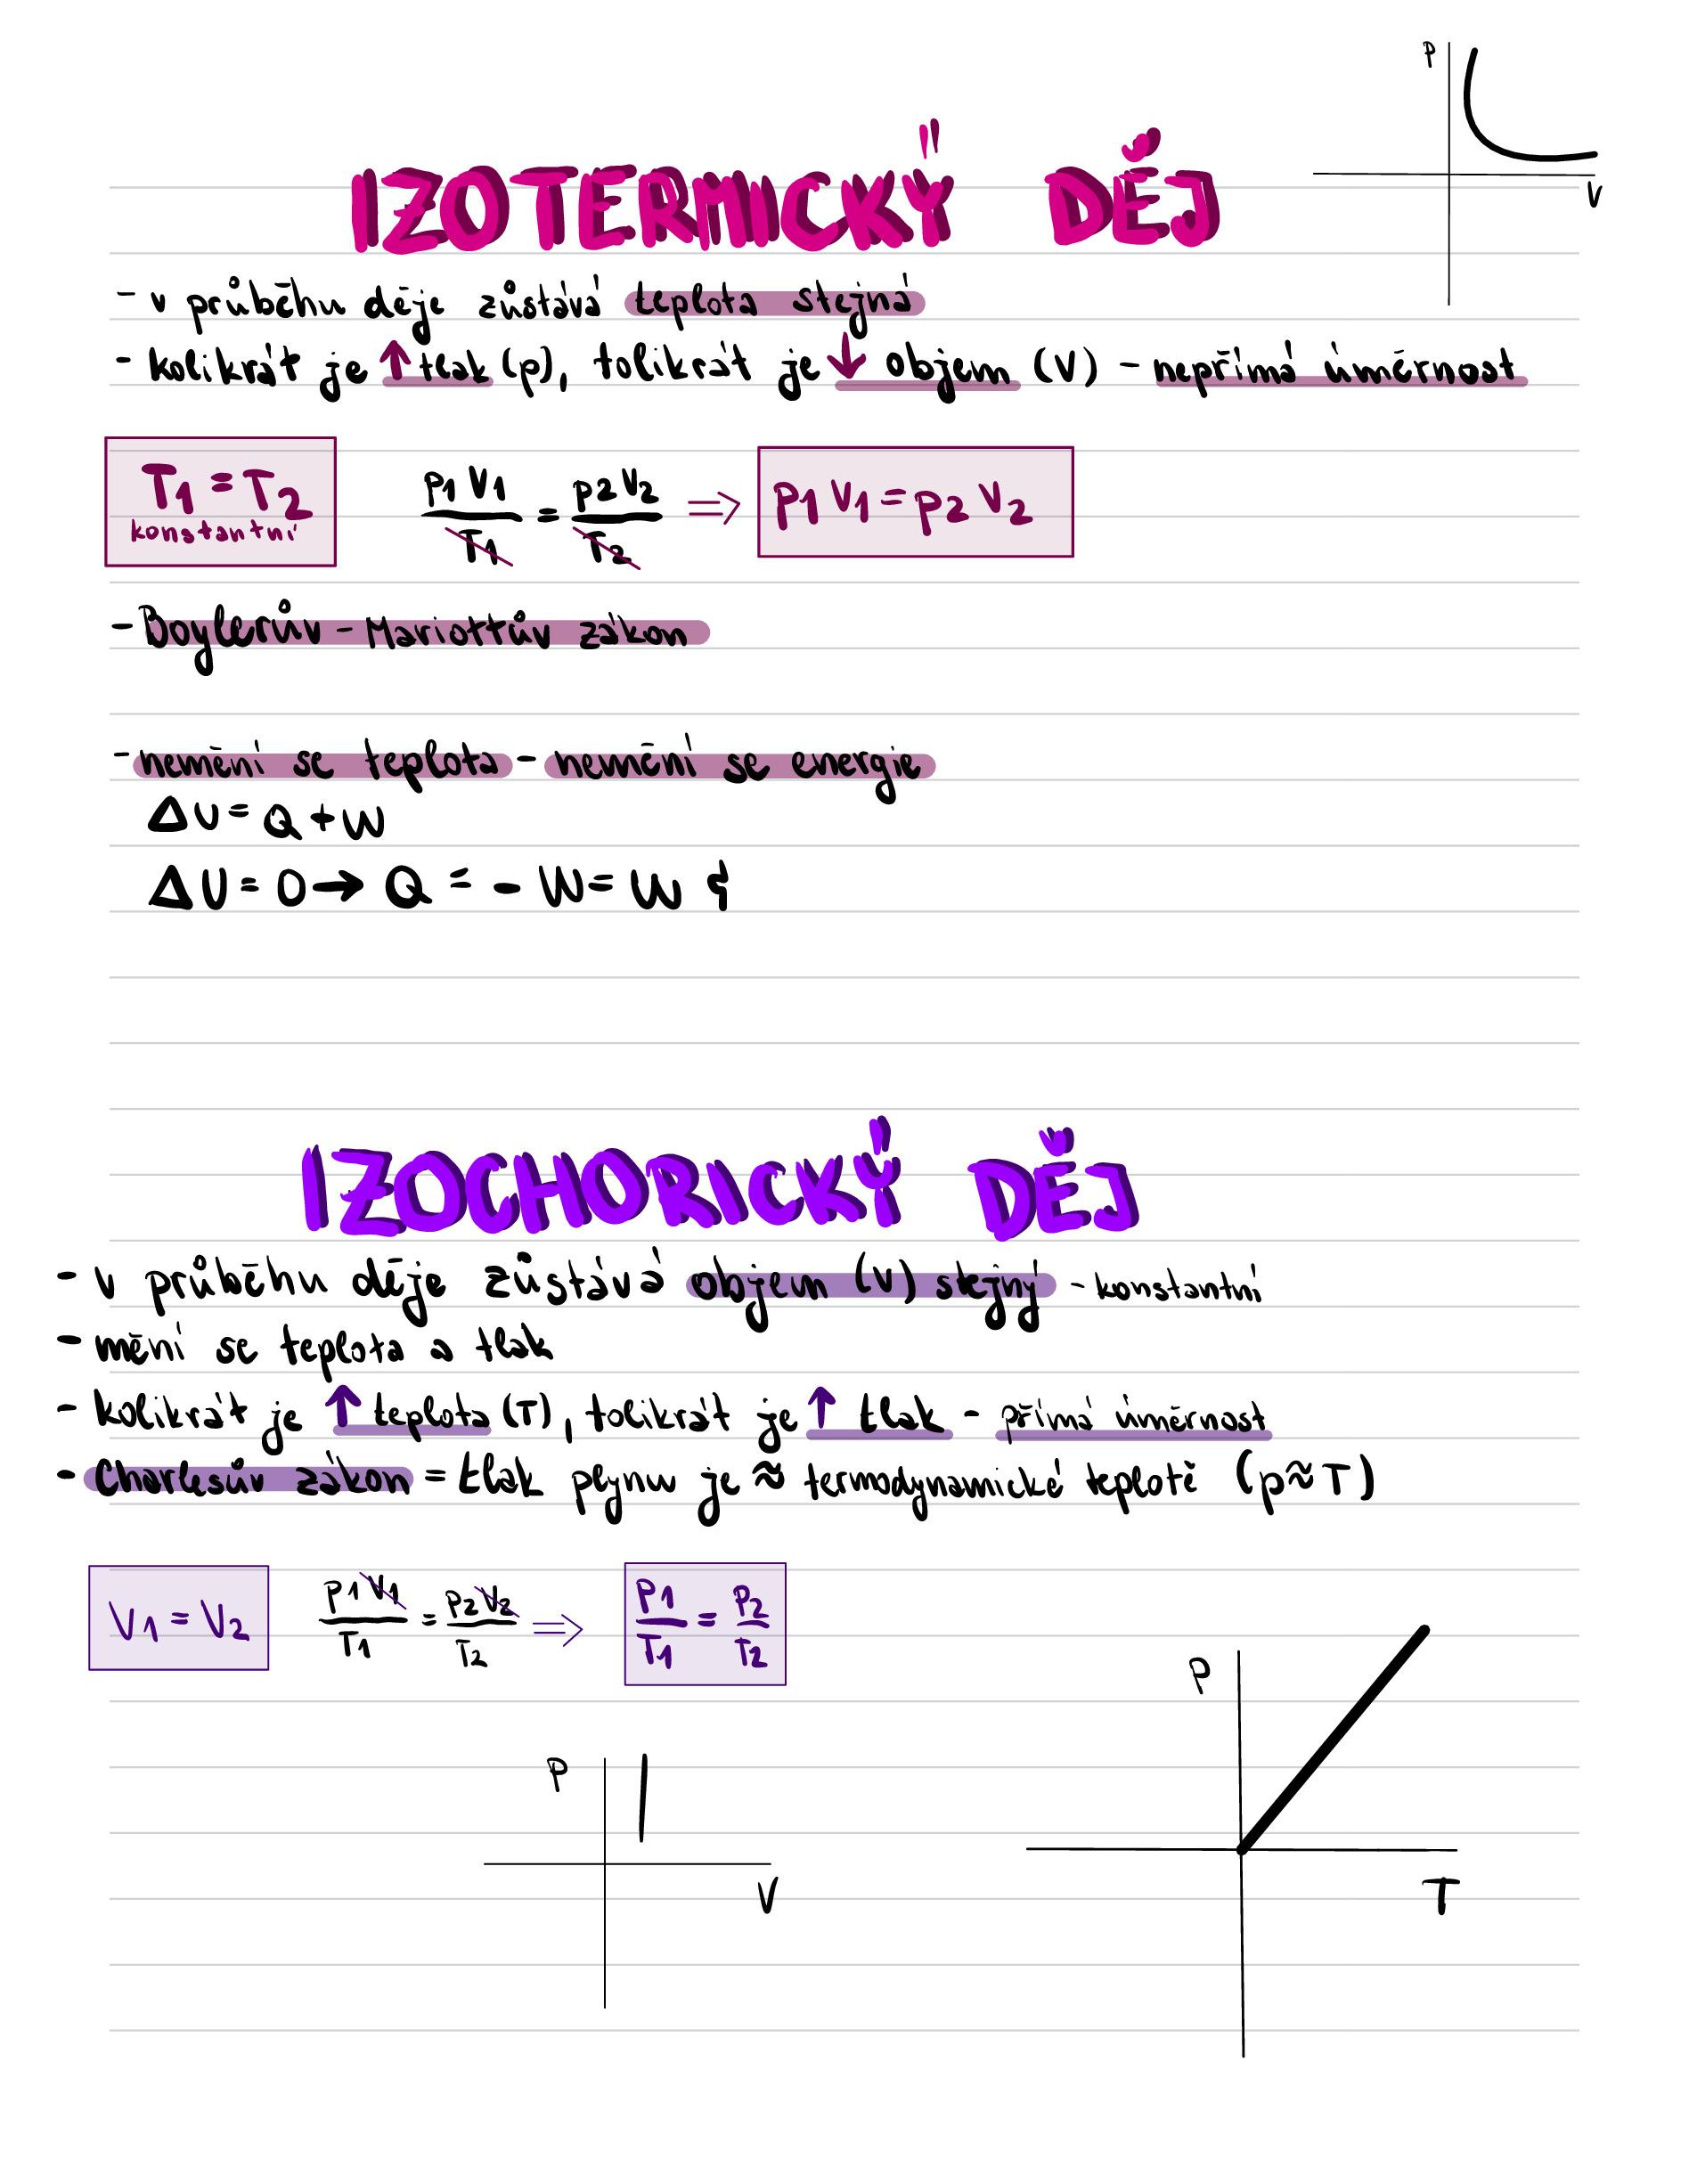 p
V
IZOTERMICKÝ DĚJ
- v průběhu děje zůstává teplota stejná
- kolikrát je ↑ tlak (p), tolikrát je ↓ objem (V) - nepřímá úměrnost
T1 = T2
konstantní
p1 V1 / T1 = p2 V2 / T2 ⇒ p1 V1 = p2 V2
- Boylerův - Mariottův zákon
- nemění se teplota - nemění se energie
ΔU = Q + W
ΔU = 0 → Q = - W = W
IZOCHORICKÝ DĚJ
- v průběhu děje zůstává objem (V) stejný - konstantní
- mění se teplota a tlak
- kolikrát je ↑ teplota (T), tolikrát je ↑ tlak - přímá úměrnost
- Charlesův zákon = tlak plynu je ≈ termodynamické teplotě (p ≈ T)
V1 = V2
p1 V1 / T1 = p2 V2 / T2 ⇒ p1 / T1 = p2 / T2
p
V
p
T